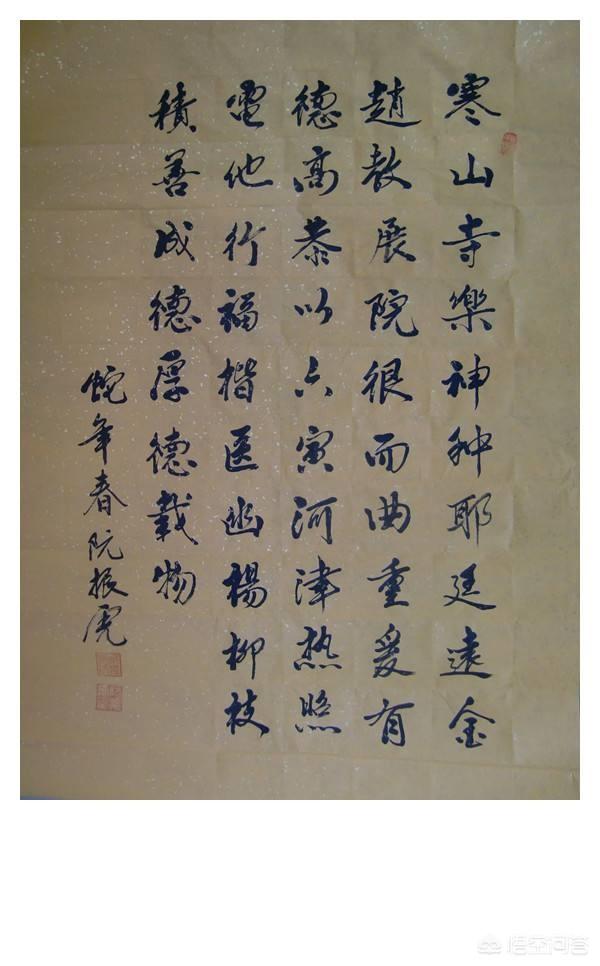 寒山寺樂神種耶廷遠金
趙教展院很而曲重爰有
德高恭以六寅河津热照
電他行福楷医幽楊柳枝
積善成德厚德載物
蛇年春阮振虎
悟空问答